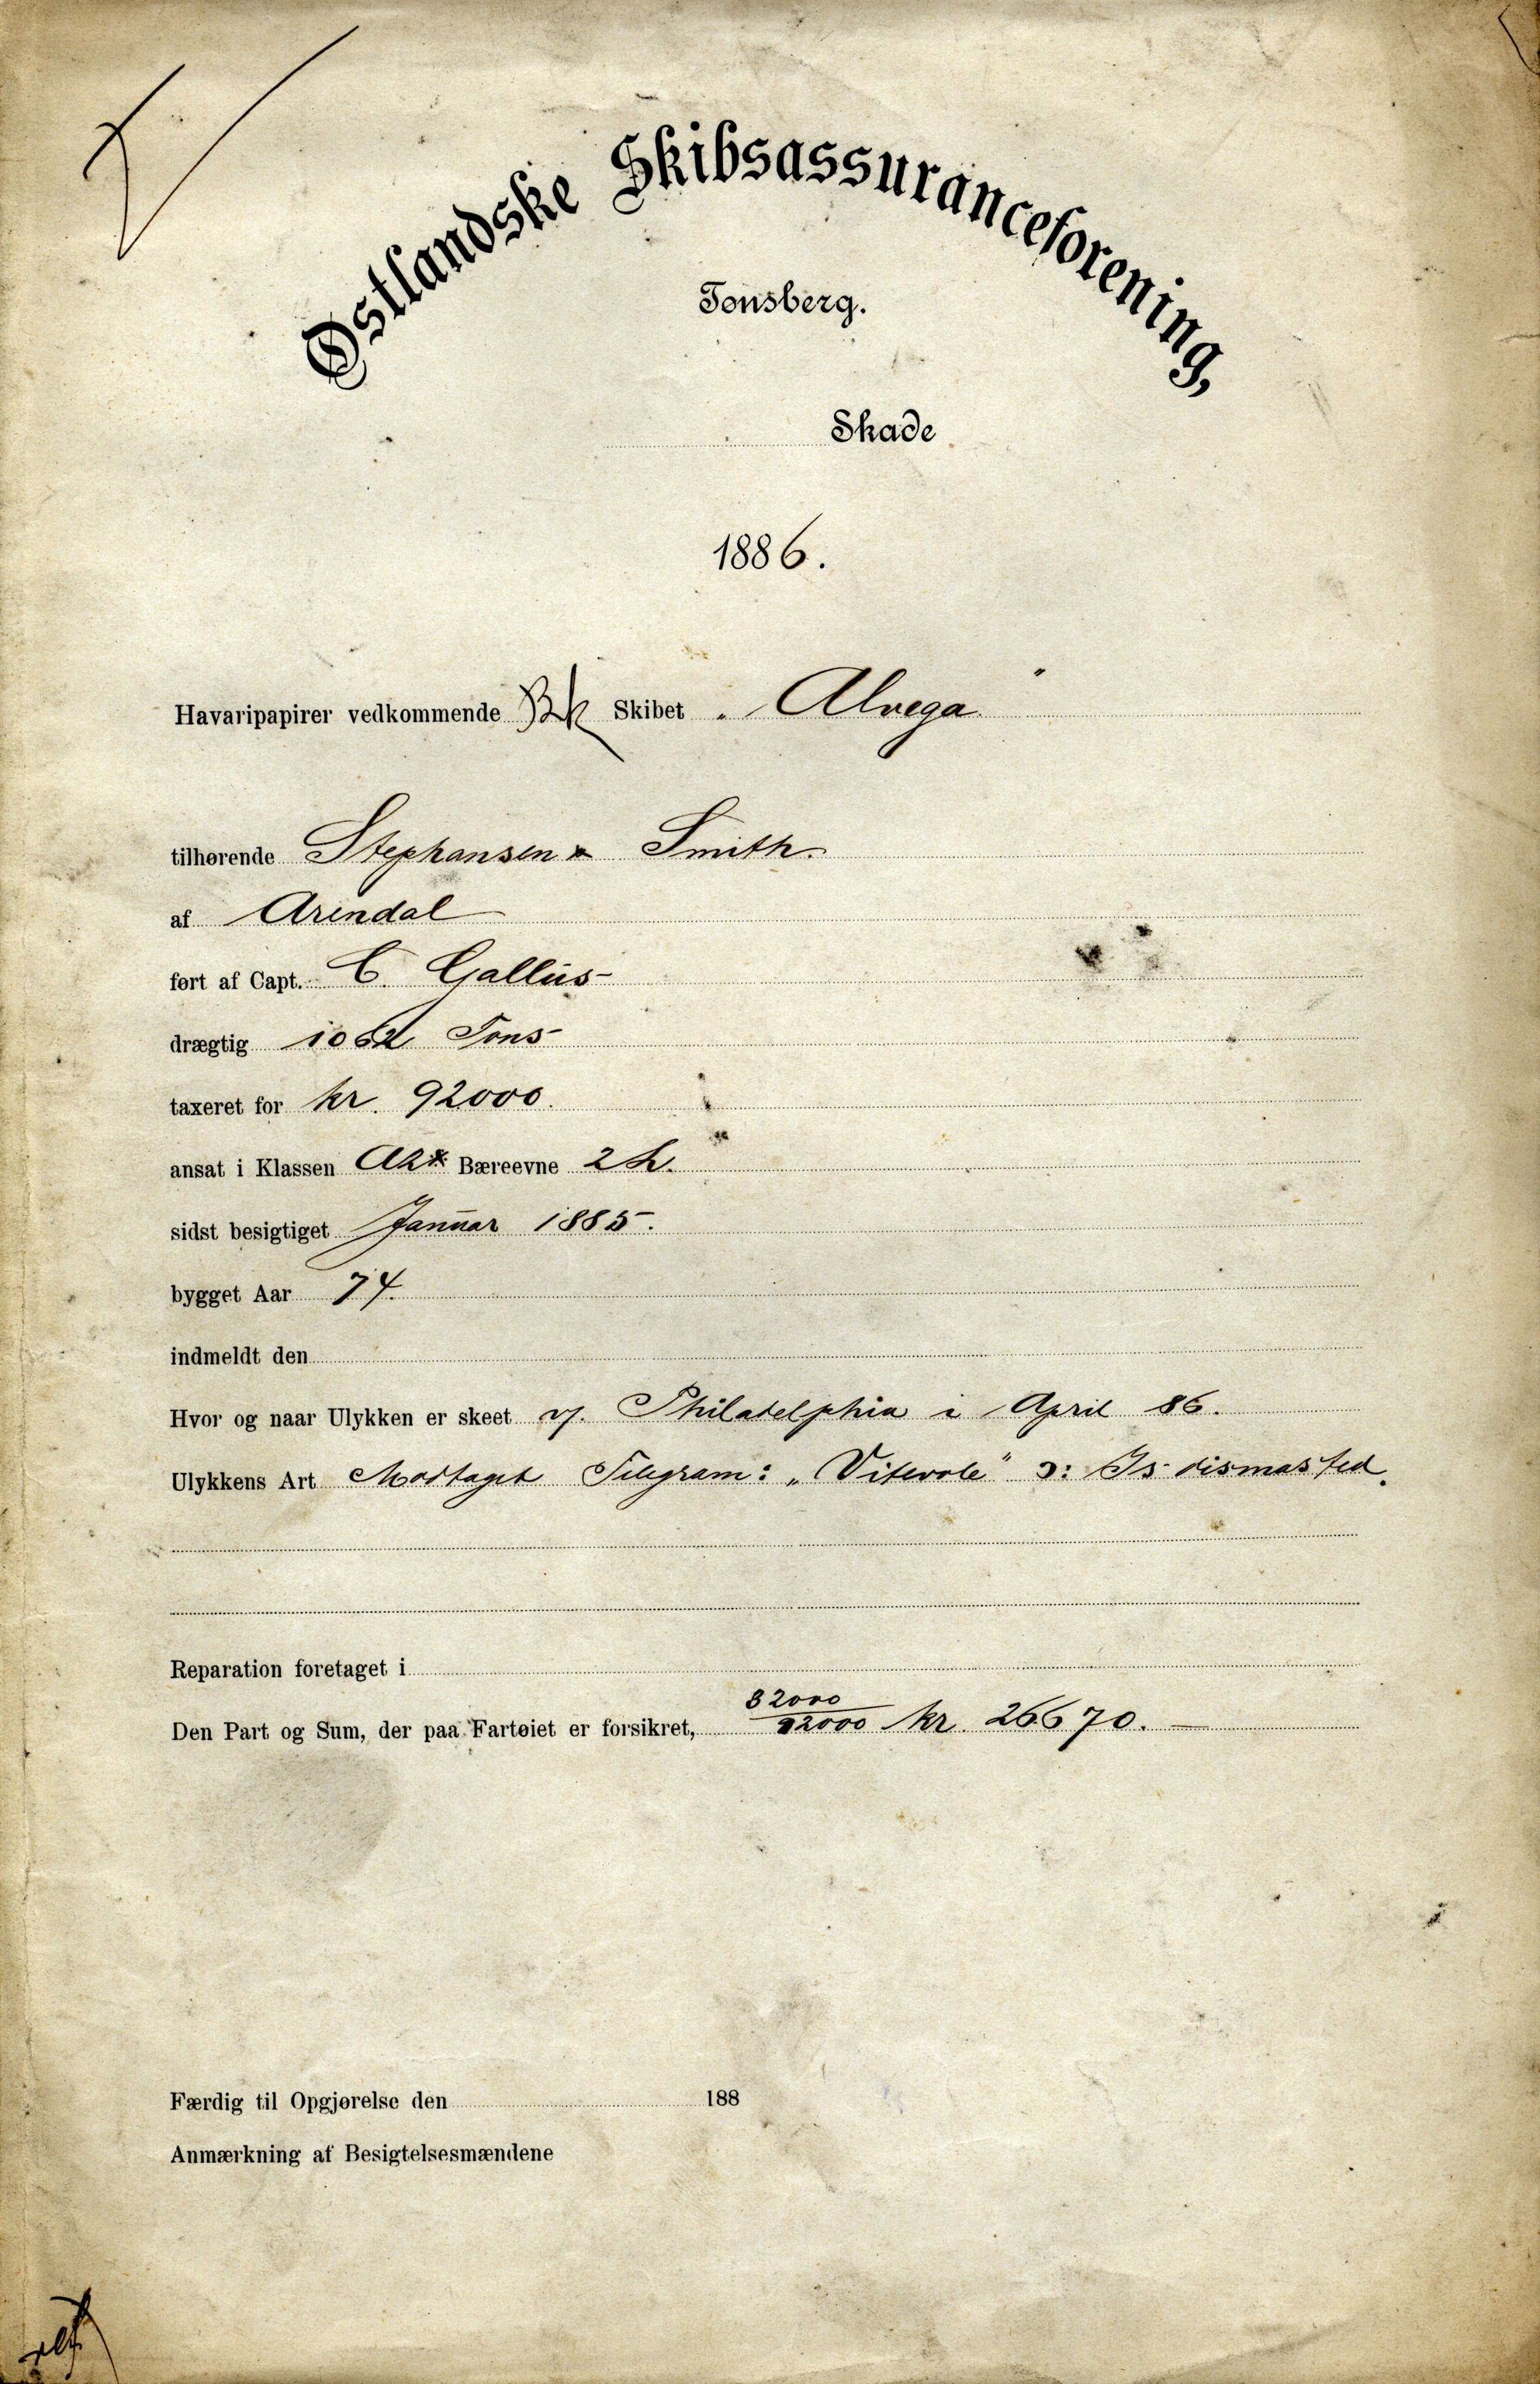 Østlandske Skibsassuranceforening,
Tønsberg.
Skade
1886.
Havaripapirer vedkommende Bk Skibet „Alvega"
tilhørende Stephansen & Smith.
af Arendal
ført af Capt. C. Gallus
drægtig 1062 Tons
taxeret for kr. 92000.
ansat i Klassen A2* Bæreevne 2 L.
sidst besigtiget Januar 1885.
bygget Aar 74.
indmeldt den
Hvor og naar Ulykken er skeet v. Philadelphia i April 86.
Ulykkens Art Modtaget Telegram: „Vitevole" ɔ: Is dismasted.
Reparation foretaget i
Den Part og Sum, der paa Fartøiet er forsikret, 32000/92000 kr 26670.—
Færdig til Opgjørelse den 188
Anmærkning af Besigtelsesmændene